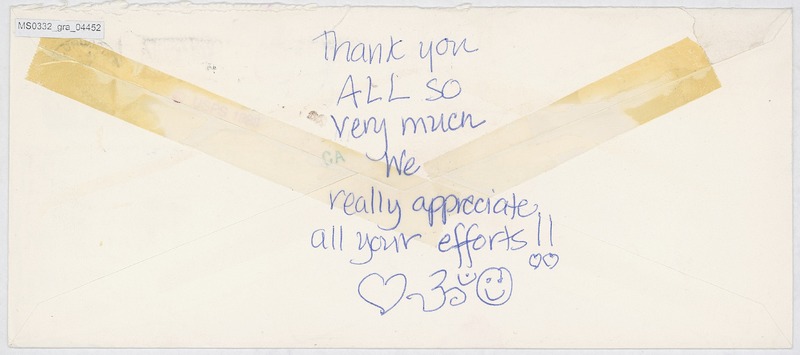 MS0332_gra_04452
Thank you
ALL SO
very much
We
really appreciate
all your efforts!!
♡ॐ☺